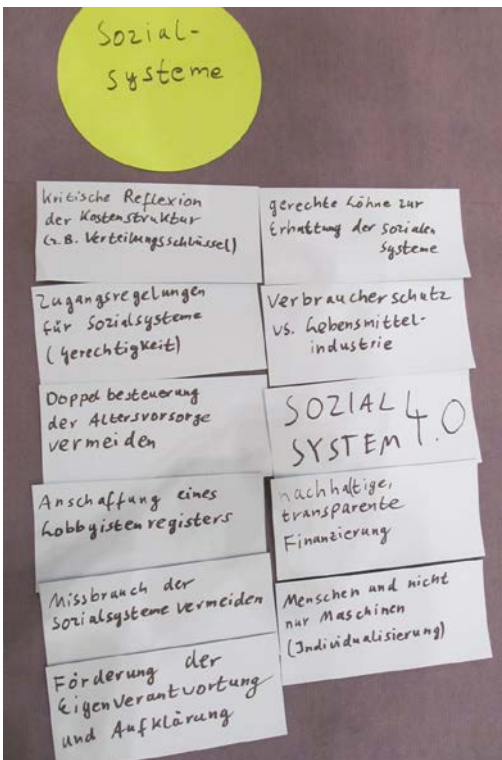 Sozial-
systeme
kritische Reflexion
der Kostenstruktur
(z.B. Verteilungsschlüssel)
Zugangsregelungen
für Sozialsysteme
(Gerechtigkeit)
Doppelbesteuerung
der Altersvorsorge
vermeiden
Anschaffung eines
Lobbyistenregisters
Missbrauch der
Sozialsysteme vermeiden
Förderung der
Eigenverantwortung
und Aufklärung
gerechte Löhne zur
Erhaltung der sozialen
Systeme
Verbraucherschutz
vs. Lebensmittel-
industrie
SOZIAL
SYSTEM 4.0
nachhaltige,
transparente
Finanzierung
Menschen und nicht
nur Maschinen
(Individualisierung)